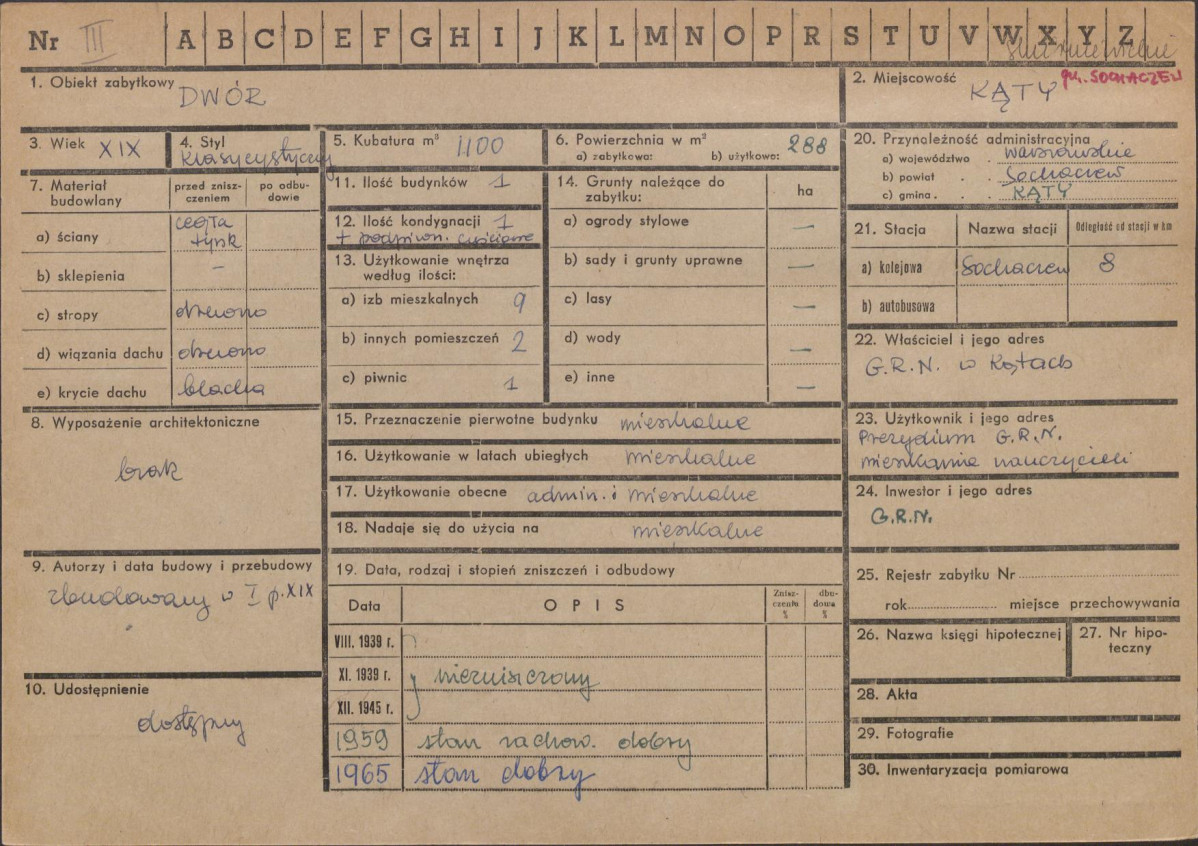 Nr III A B C D E F G H I J K L M N O P R S T U V W X Y Z
1. Obiekt zabytkowy DWÓR
2. Miejscowość KĄTY gm. SOCHACZEW
3. Wiek XIX
4. Styl klasycystyczny
5. Kubatura m³ 1100
6. Powierzchnia w m² 288
a) zabytkowa: b) użytkowa:
7. Materiał budowlany
przed zniszczeniem
po odbudowie
a) ściany cegła tynk
b) sklepienia –
c) stropy drewno
d) wiązania dachu drewno
e) krycie dachu blacha
8. Wyposażenie architektoniczne
brak
9. Autorzy i data budowy i przebudowy
zbudowany w I p. XIX
10. Udostępnienie
dostępny
11. Ilość budynków 1
12. Ilość kondygnacji 1
+ podpiwn. częściowe
13. Użytkowanie wnętrza
według ilości:
a) izb mieszkalnych 9
b) innych pomieszczeń 2
c) piwnic 1
14. Grunty należące do
zabytku: ha
a) ogrody stylowe —
b) sady i grunty uprawne —
c) lasy —
d) wody —
e) inne —
15. Przeznaczenie pierwotne budynku mieszkalne
16. Użytkowanie w latach ubiegłych mieszkalne
17. Użytkowanie obecne admin. i mieszkalne
18. Nadaje się do użycia na mieszkalne
19. Data, rodzaj i stopień zniszczeń i odbudowy
Data OPIS Zniszczenia % dbudowa %
VIII. 1939 r.
XI. 1939 r. niezniszczony
XII. 1945 r.
1959 stan zachow. dobry
1965 stan dobry
20. Przynależność administracyjna
a) województwo . warszawskie
b) powiat . . Sochaczew
c) gmina . . . KĄTY
21. Stacja Nazwa stacji Odległość od stacji w km
a) kolejowa Sochaczew 8
b) autobusowa
22. Właściciel i jego adres
G.R.N. w Kątach
23. Użytkownik i jego adres
Prezydium G.R.N.
mieszkania nauczycieli
24. Inwestor i jego adres
G.R.N.
25. Rejestr zabytku Nr
rok miejsce przechowywania
26. Nazwa księgi hipotecznej
27. Nr hipoteczny
28. Akta
29. Fotografie
30. Inwentaryzacja pomiarowa